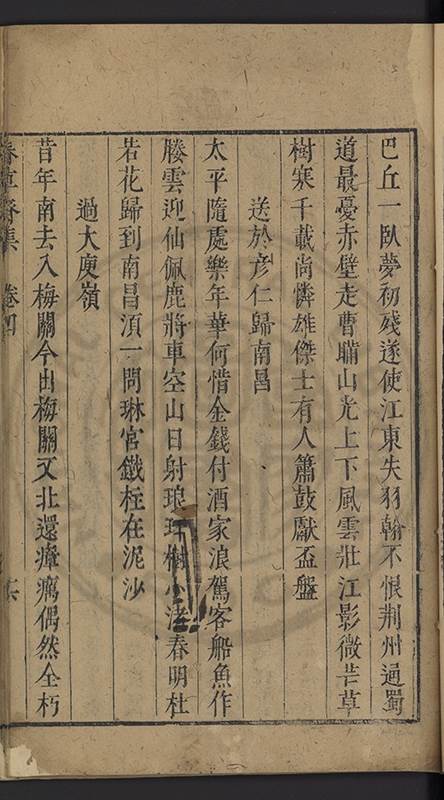 巴丘一臥夢初殘遂使江東失羽翰不恨荆州通蜀
道最憂赤壁走曹瞞山光上下風雲壯江影微茫草
樹寒千載尚憐雄傑士有人簫鼓獻盃盤
送於彦仁歸南昌
太平隨處樂年華何惜金錢付酒家浪駕客船魚作
媵雲迎仙佩鹿將車空山日射琅玕樹小渚春明杜
若花歸到南昌須一問琳宮鐵柱在泥沙
過大庾嶺
昔年南去入梅關今出梅關又北還瘴癘偶然全朽
春草齋集 卷四